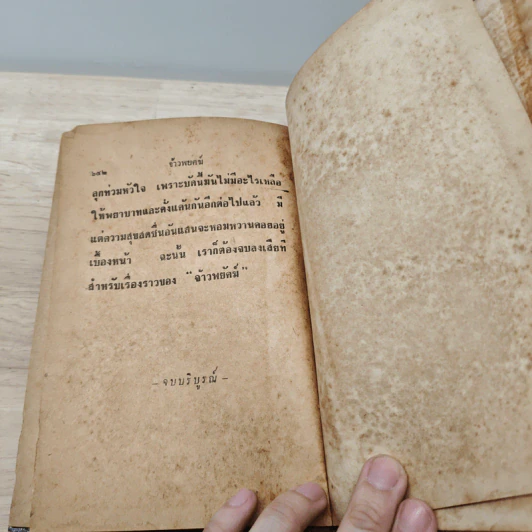 ๖๕๒
จ้าวพยัคฆ์
อุกท่วมหัวใจ เพราะบัดนี้มันไม่มีอะไรเหลือ
ให้พยาบาทและคั่งแค้นกันอีกต่อไปแล้ว มี
แต่ความสุขสดชื่นอันแสนจะหอมหวานคอยอยู่
เบื้องหน้า ฉะนั้น เราก็ต้องจบลงเสียที
สำหรับเรื่องราวของ “จ้าวพยัคฆ์”
– จบบริบูรณ์ –